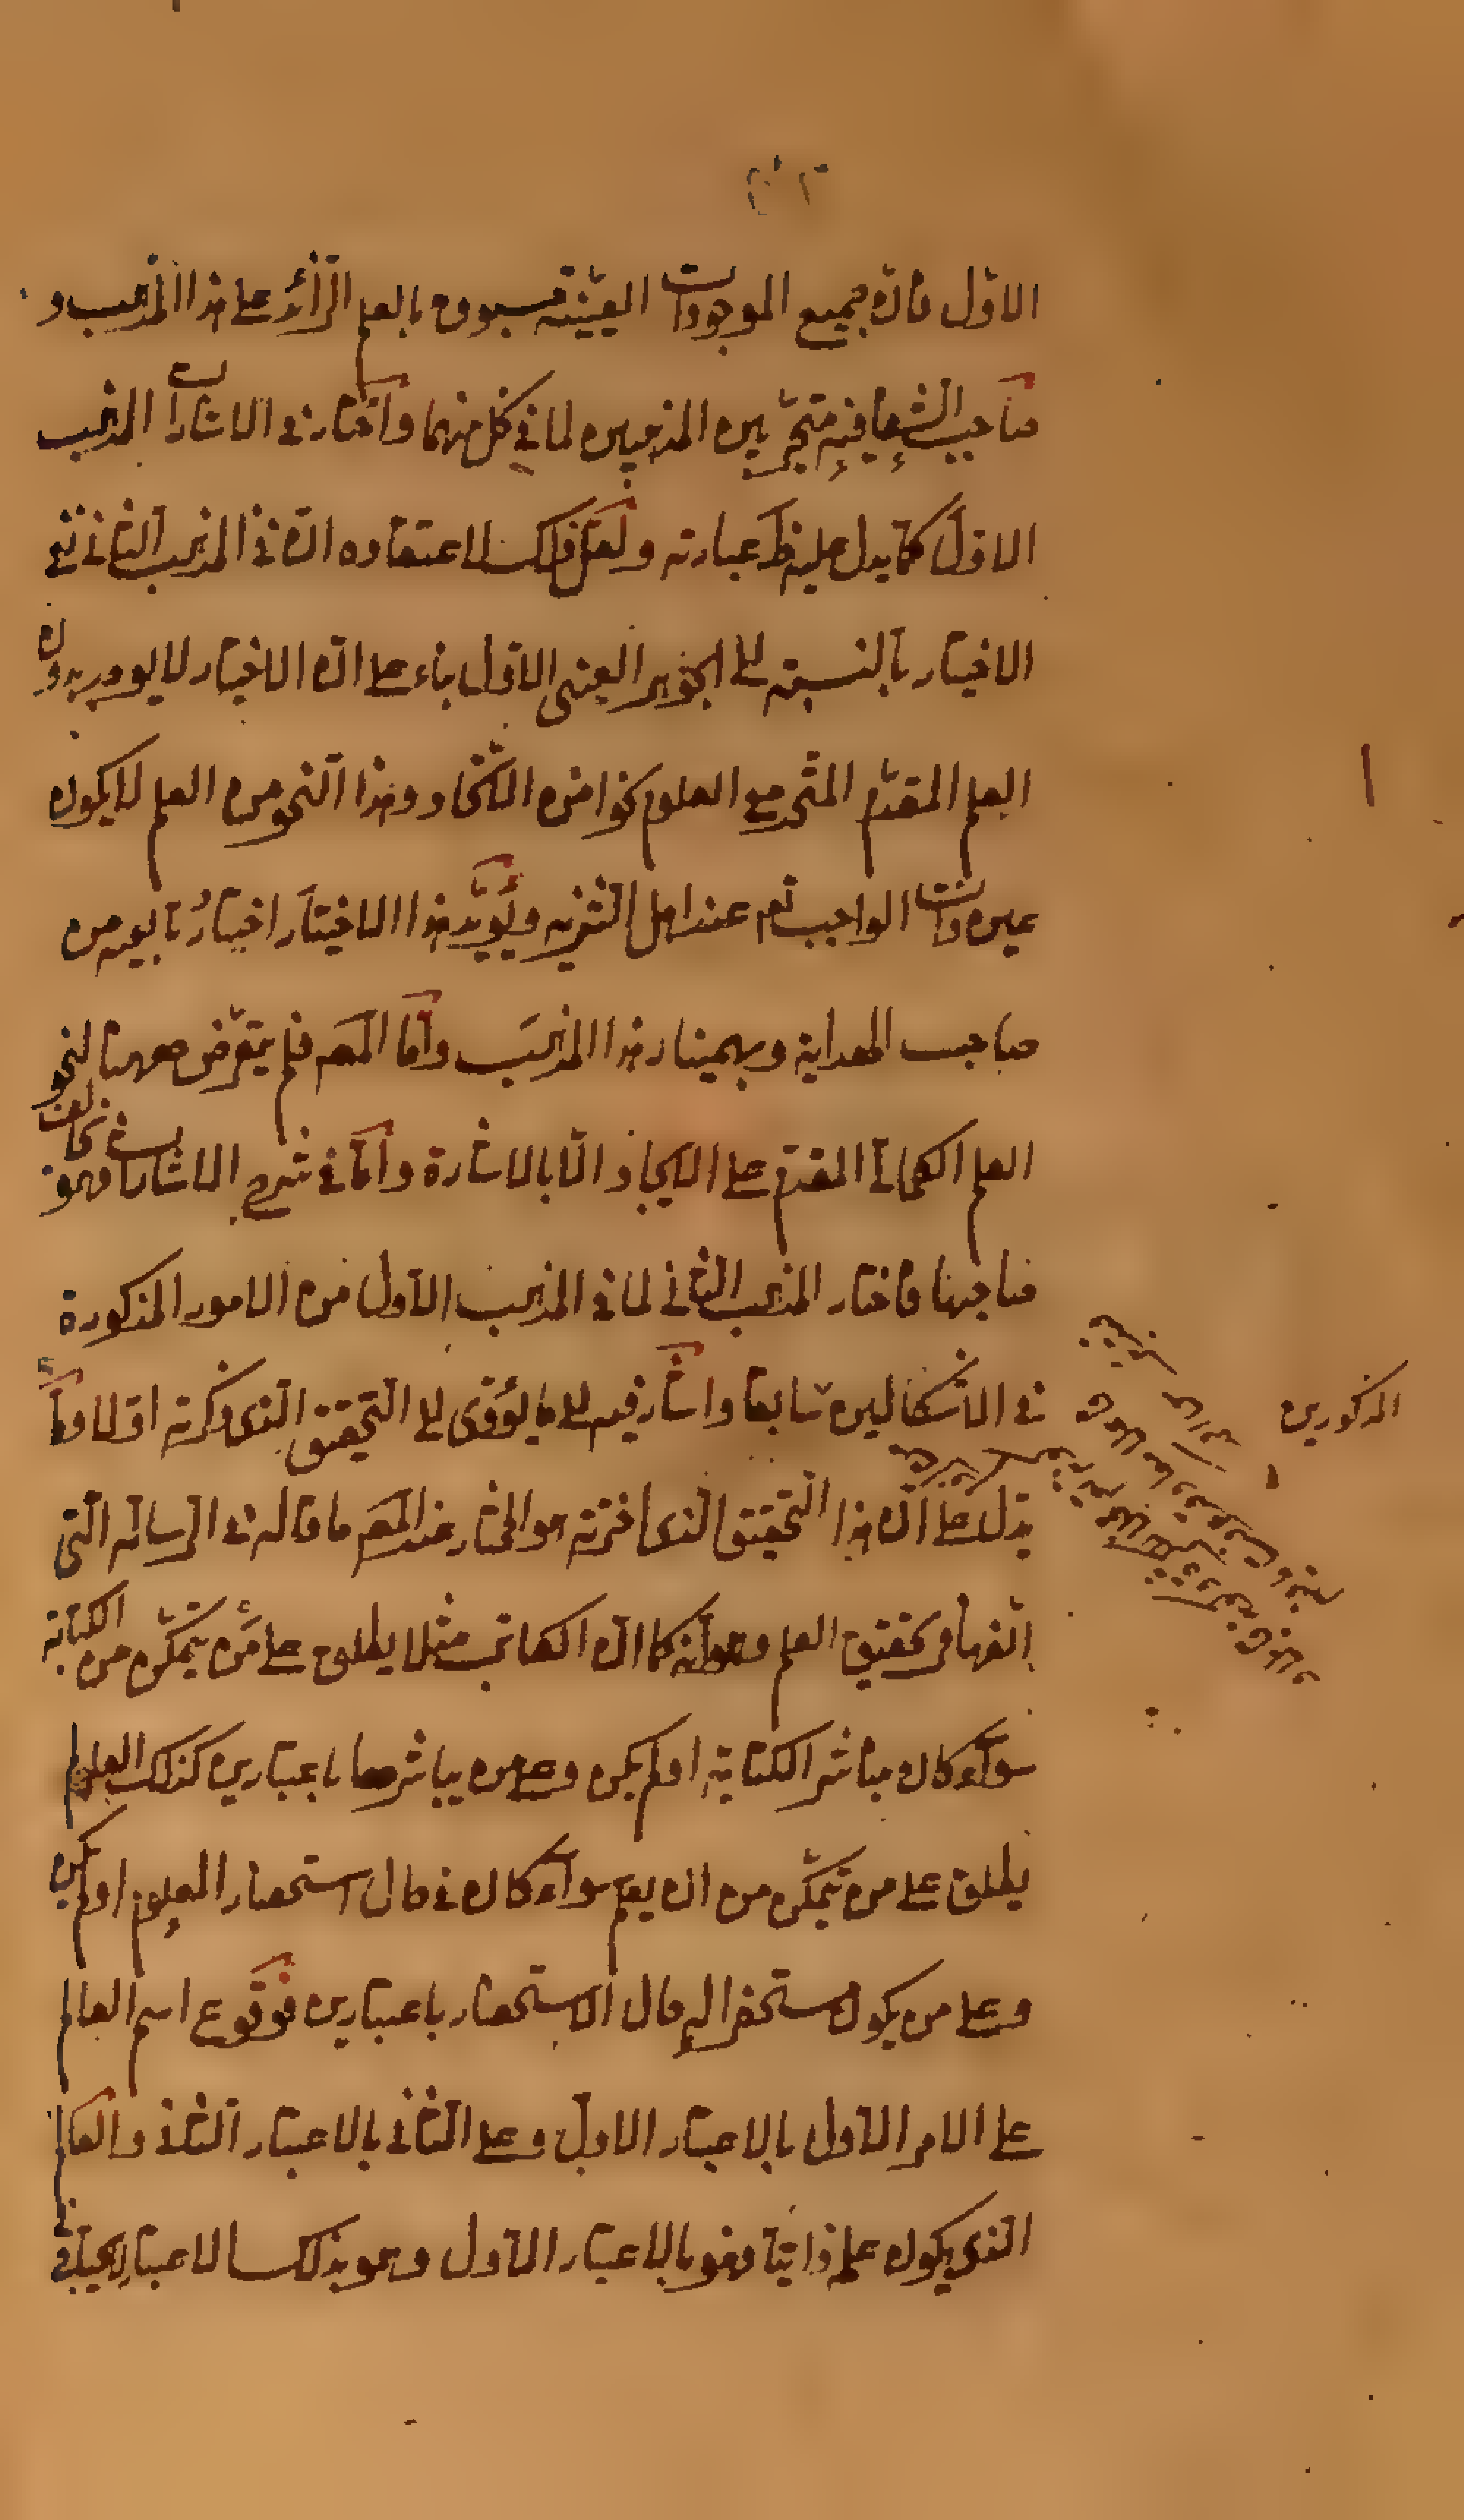 الاوّل فانّ جميع الموجودات العينيّة مسبوق بالعلم الزّائد على هذا المذهب و
صاحب الشفا فيه متحيّر بين المذهبين لما في كل منهما واختار في الاشارات المذهب
الاوّل كما يدل عليه ظ عبارته ولعلّ ذلك لاعتقاده انّ في المذهب الثاني نفى
الاختيار بالنسبة الى الجوهر العينى الاوّل بناء على انّ الاختيار لا يوجد بدون
العلم المقدّم المتّحد مع المعلوم نحوا من الاتّحاد وهذا النحو من العلم لا يكون
عين ذات الواجب تعم عند اهل التنزيه ويؤيّد هذا الاختيار اختيار تابعيه من
صاحب الهداية وبهمنيار هذا المذهب وامّا المصم فلم يتعرّض ههنا لنحو
العلم الكمالى المقدّم على الايجاد الّا بالاشارة وامّا في شرح الاشارات فهو يخالف
صاحبها فاختار المذهب الثانى لما في المذهب الاول من الامور المذكورة
في الاشكالين سابعا واشار فيه الى ما يؤدّى الى التحقيق الذى ذكرته اوّلا وممّا
المذكورين
يدلّ على انّ هذا التحقيق الذى اخترته هو المختار عند المصم ما قاله في الرسالة التى
الّفها في تحقيق العلم وهو انّه كما انّ الكاتب مثلا يطلق على من يتمكّن من الكتابة
سواء كان مباشر الكتابة او لم يكن وعلى من يباشرها باعتبارين كذلك العالم
يطلق على من يتمكّن من ان يعلم سواء كان في حال استحضار المعلوم او لم يكن
وعلى من يكون مستحضرا له حال الاستحضار باعتبارين فوقوع اسم العالم
على الامر الاول بالاعتبار الاول وعلى الثانى بالاعتبار الثانى والعالم
الذى يكون علمه ذاتيا فهو بالاعتبار الاول وهو بذلك الاعتبار لا يحتاج في